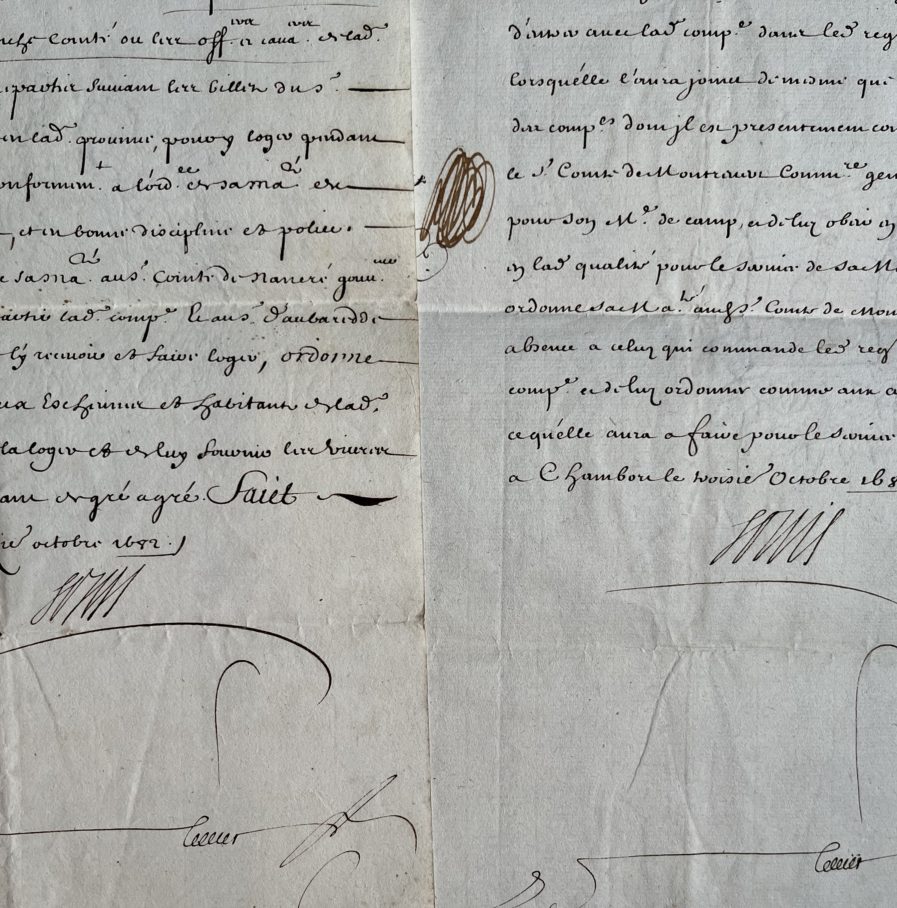 nche Comté ou les off.ers et cava.ers de lad.
départir suivant les billets du s.r
en lad. province, pourront loger pendant
conformém.t a l'ord.ce de sa ma.té
, et en bonne discipline et police.
sa ma.té au s.r Comte de
lad. comp.e Et au s.r d'aubaredde
recevoir et faire loger, ordonne
Eschevins et habitants de lad.
la loger et de luy fournir les vivres
de gré a gré. Faict
octobre 1682.
Louis
Letellier
d'entrer avec lad. comp.e dans led. reg
lorsqu'elle l'aura joinct de mesme que
des comp.es dont il est presentement com
le s.r Comte de Montrevel Comm.re gen
pour son M.e de camp, et de luy obeir en
en lad. qualité pour le service de sa Ma
ordonne sa Ma.té aud. s.r Comte de Mon
absence a celuy qui commande led. reg
comp.e et de luy ordonner comme aux a
ce qu'elle aura a faire pour le service
a Chambord le troisie Octobre 168
Louis
Letellier